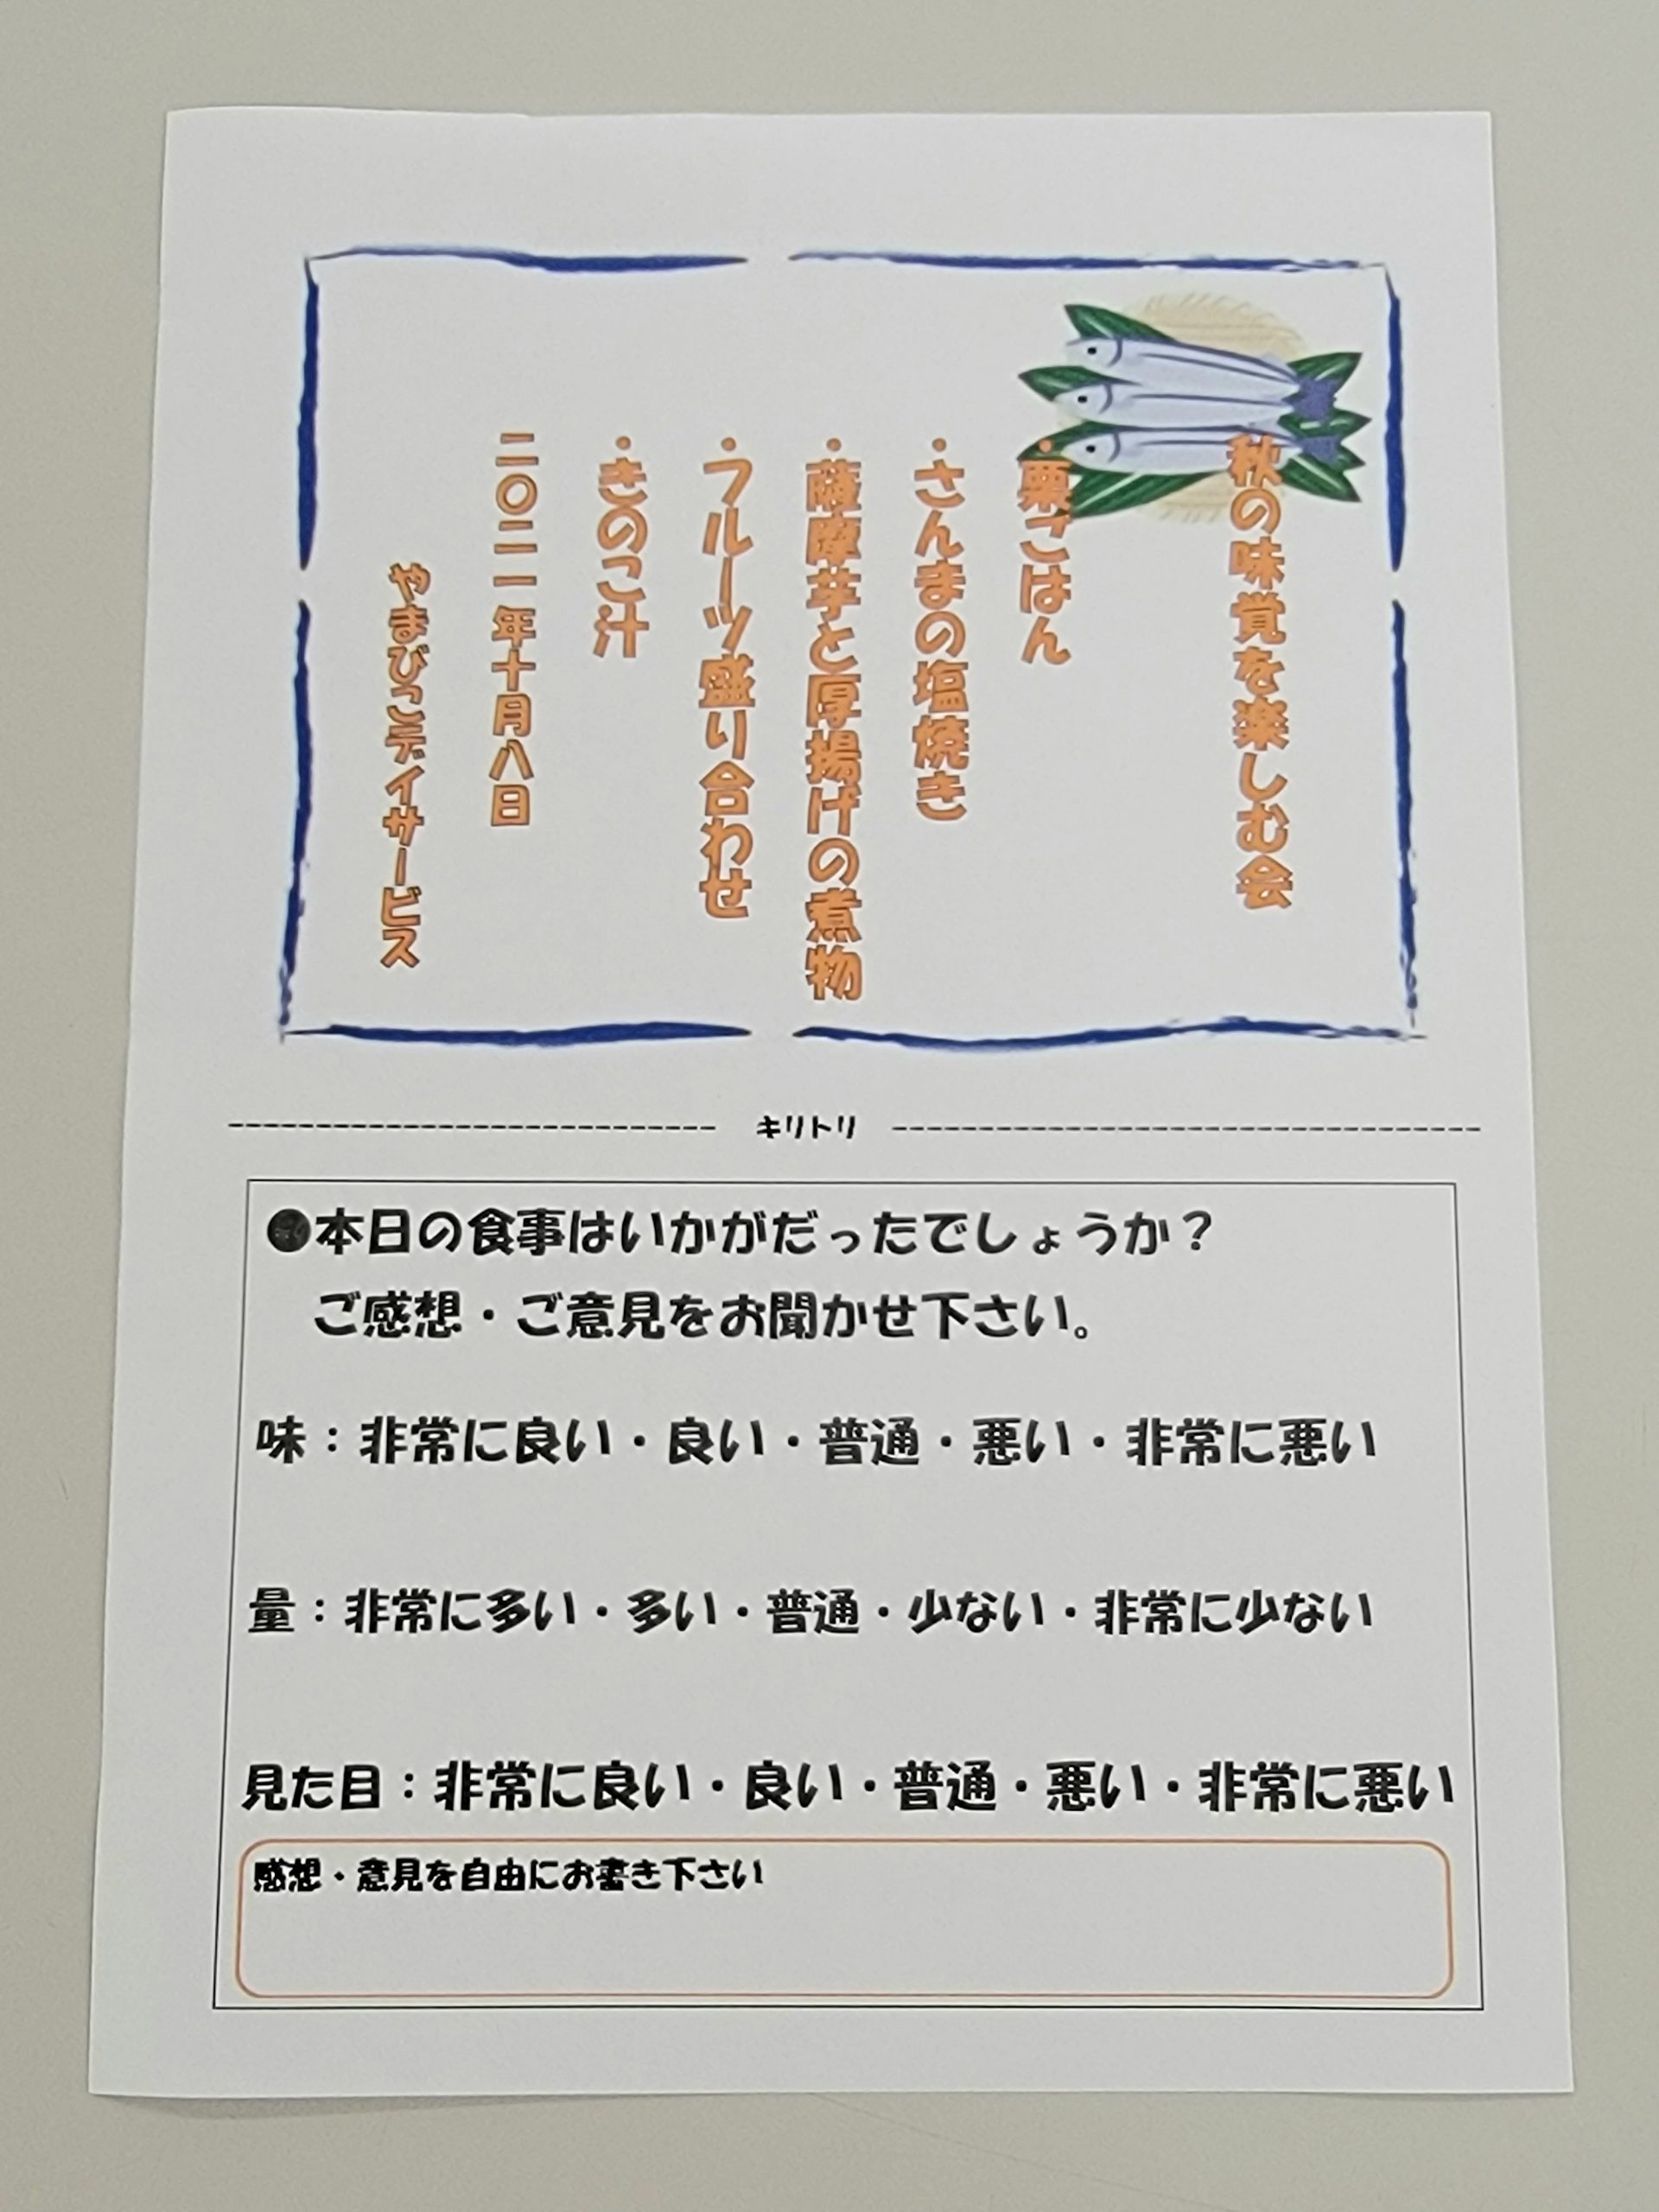 秋の味覚を楽しむ会
・栗ごはん
・さんまの塩焼き
・薩摩芋と厚揚げの煮物
・フルーツ盛り合わせ
・きのこ汁
二〇二一年十月八日
やまびこデイサービス
キリトリ
●本日の食事はいかがだったでしょうか？
ご感想・ご意見をお聞かせ下さい。
味：非常に良い・良い・普通・悪い・非常に悪い
量：非常に多い・多い・普通・少ない・非常に少ない
見た目：非常に良い・良い・普通・悪い・非常に悪い
感想・意見を自由にお書き下さい